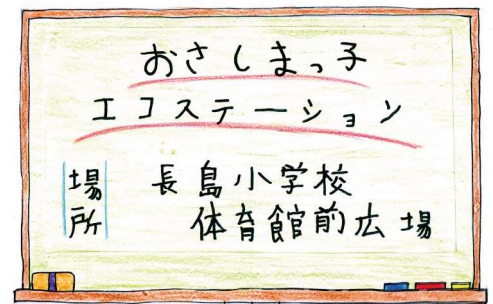 おさしまっ子
エコステーション
場所 長島小学校
体育館前広場